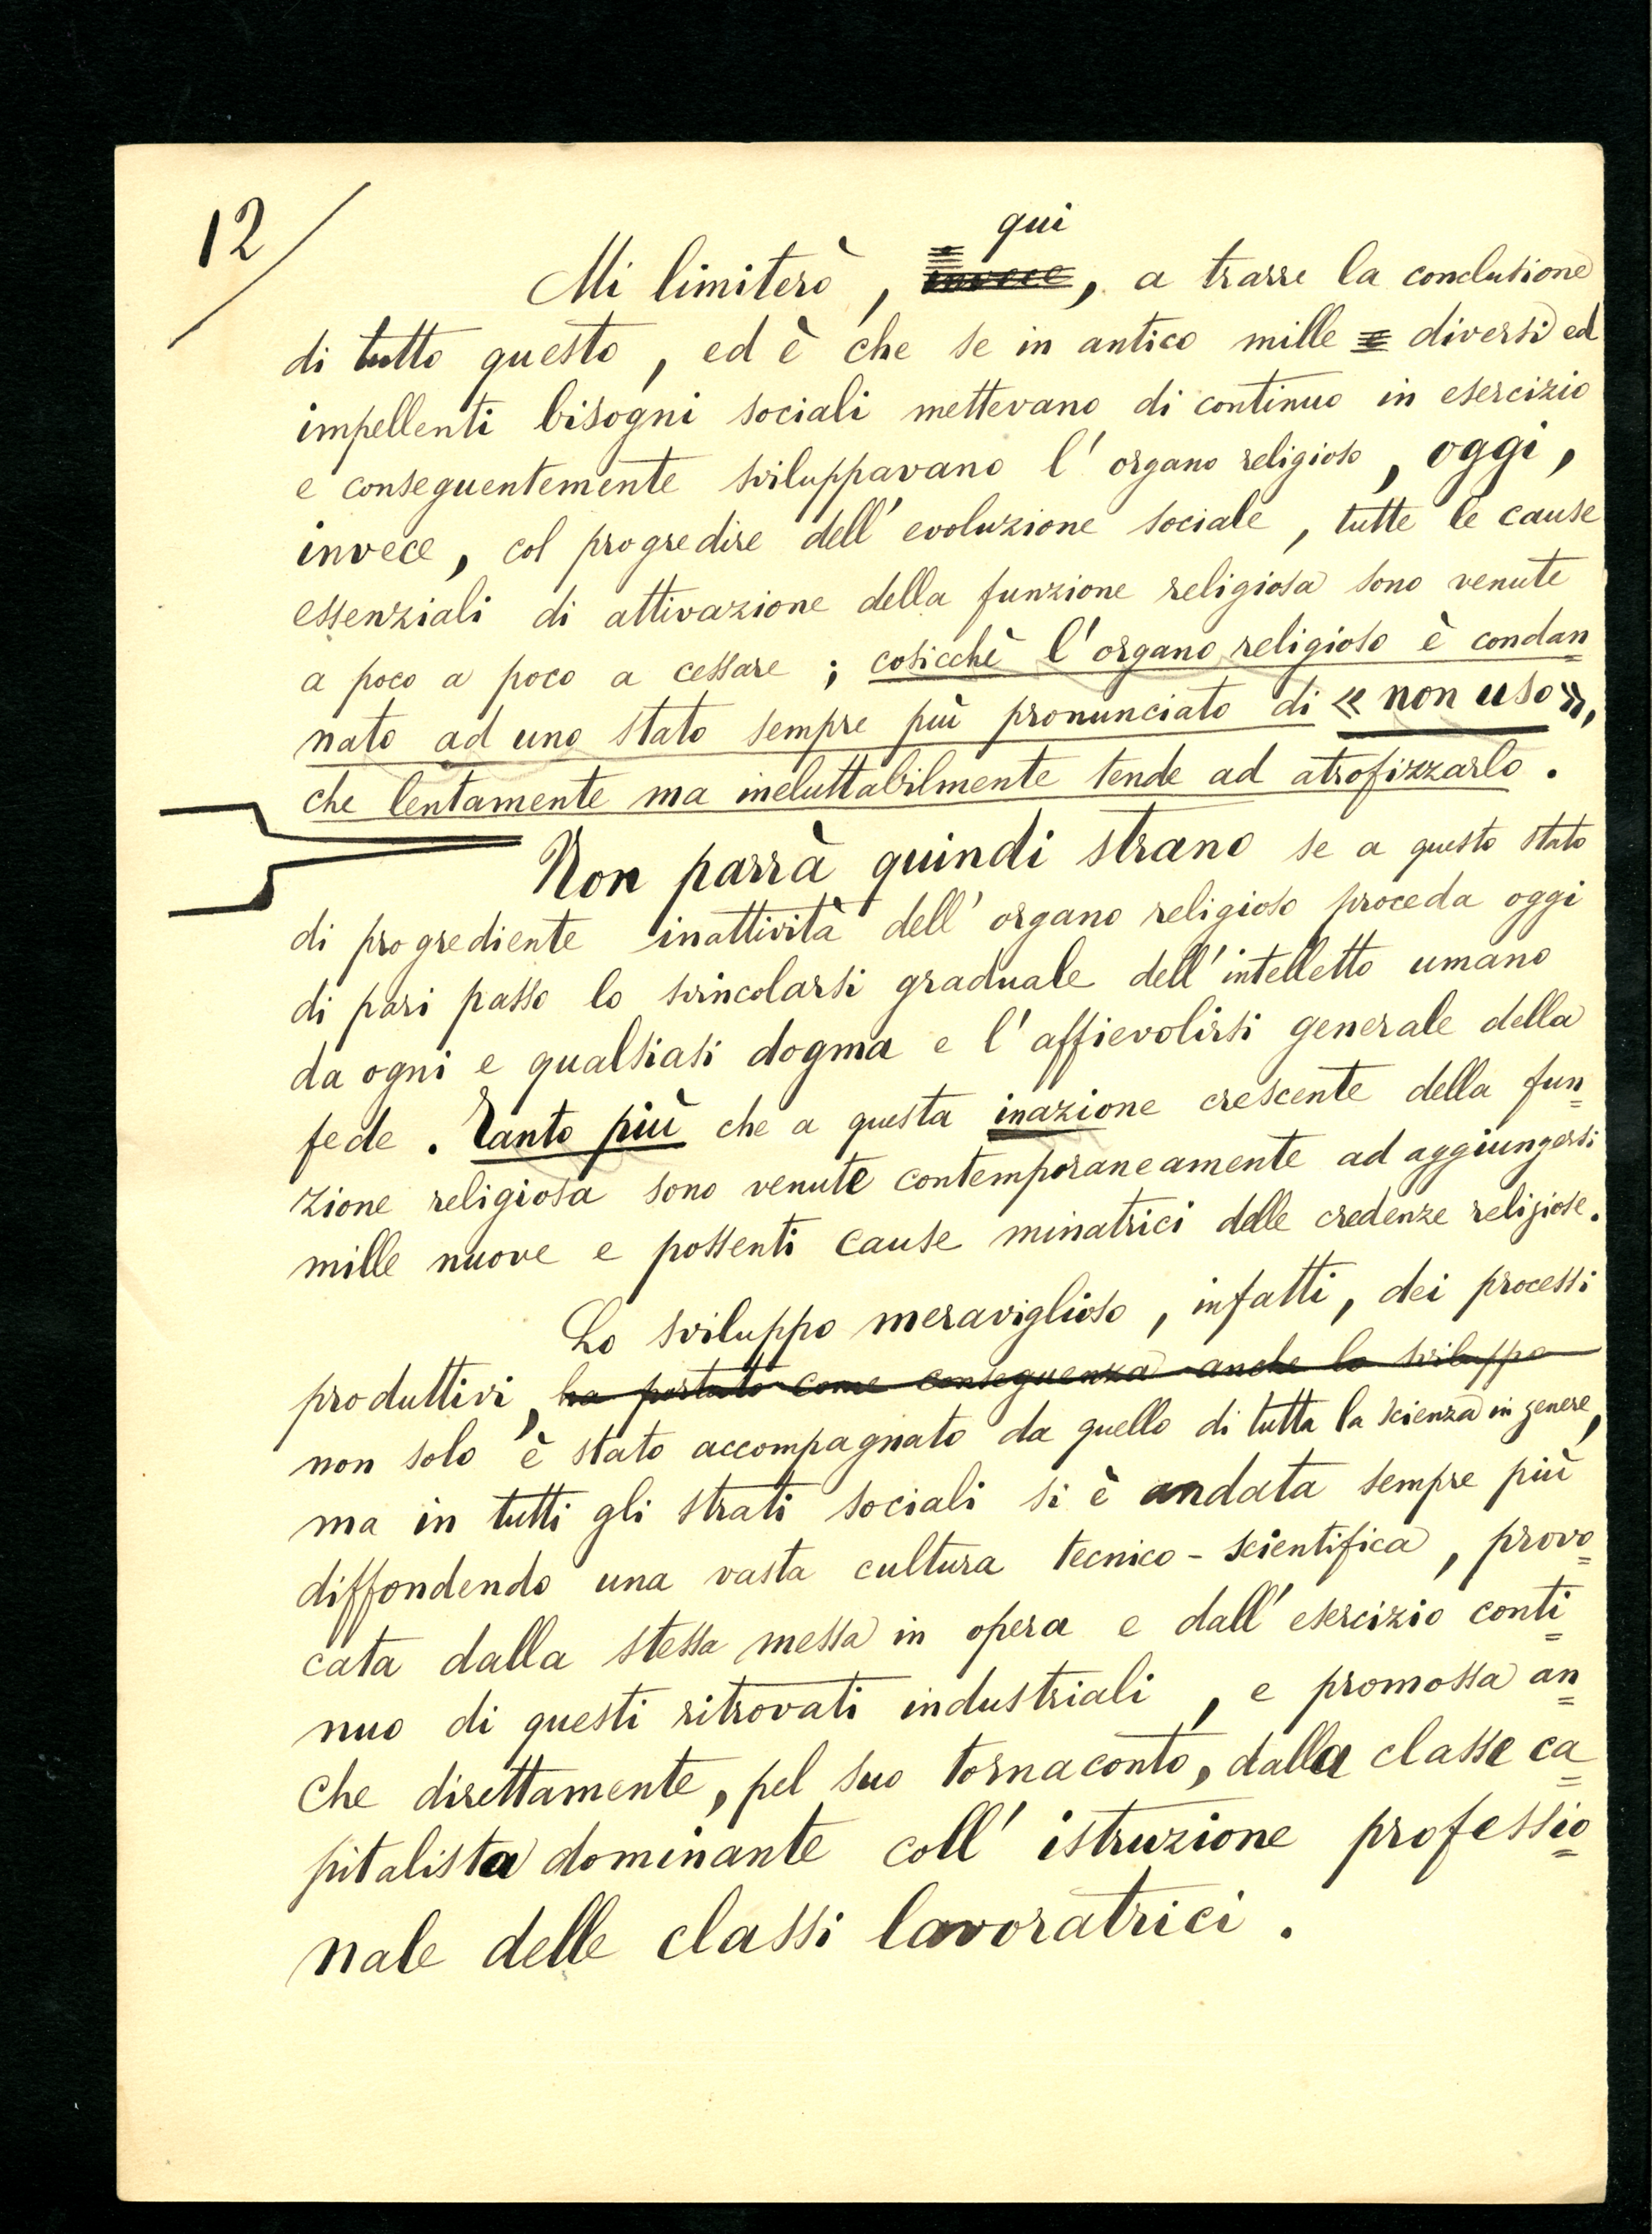 12/
qui
Mi limiterò, invece, a trarre la conclusione
di tutto questo, ed è che se in antico mille e diversi ed
impellenti bisogni sociali mettevano di continuo in esercizio
e conseguentemente sviluppavano l'organo religioso, oggi,
invece, col progredire dell'evoluzione sociale, tutte le cause
essenziali di attivazione della funzione religiosa sono venute
a poco a poco a cessare; cosicchè l'organo religioso è condan=
nato ad uno stato sempre più pronunciato di « non uso »,
che lentamente ma ineluttabilmente tende ad atrofizzarlo.
Non parrà quindi strano se a questo stato
di progrediente inattività dell'organo religioso proceda oggi
di pari passo lo svincolarsi graduale dell'intelletto umano
da ogni e qualsiasi dogma e l'affievolirsi generale della
fede. Tanto più che a questa inazione crescente della fun=
zione religiosa sono venute contemporaneamente ad aggiungersi
mille nuove e possenti cause minatrici delle credenze religiose.
Lo sviluppo meraviglioso, infatti, dei processi
produttivi, ha portato come conseguenza anche lo sviluppo
non solo è stato accompagnato da quello di tutta la scienza in genere,
ma in tutti gli strati sociali si è andata sempre più
diffondendo una vasta cultura tecnico-scientifica, provo=
cata dalla stessa messa in opera e dall'esercizio conti=
nuo di questi ritrovati industriali, e promossa an=
che direttamente, pel suo tornaconto, dalla classe ca=
pitalista dominante coll'istruzione professio=
nale delle classi lavoratrici.